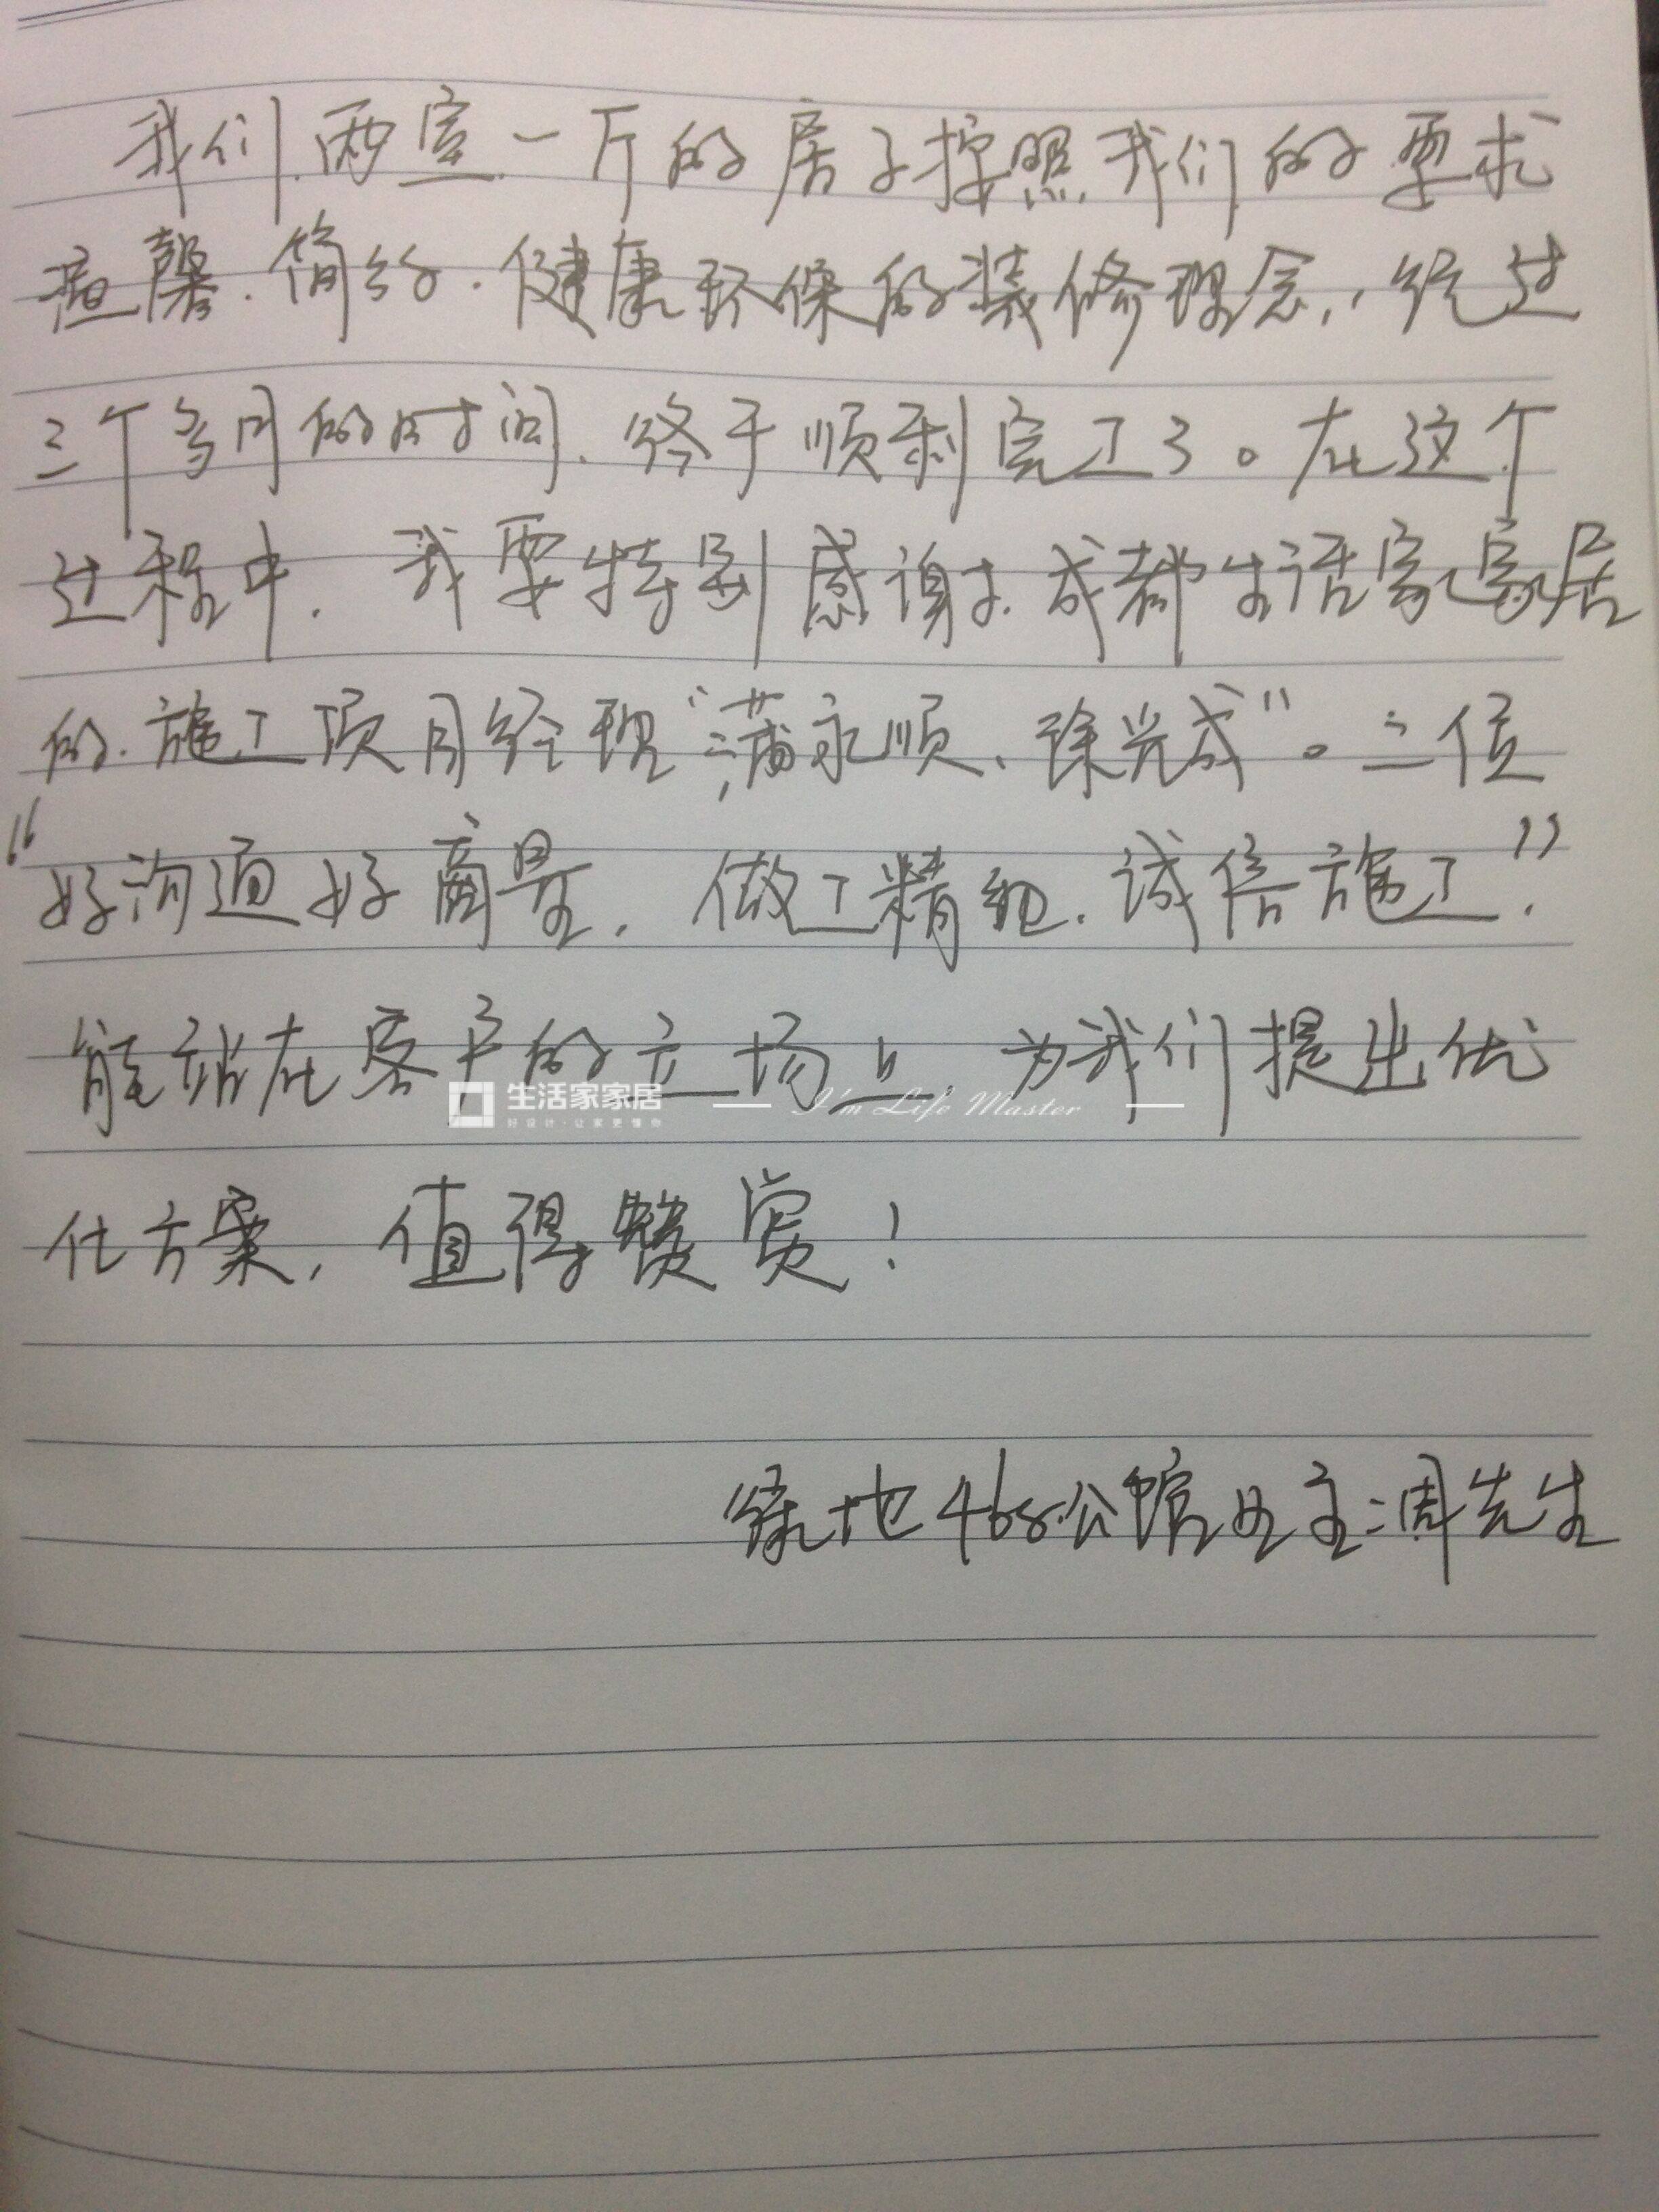 我们两室一厅的居子按照我们的要求
温馨.简约.健康环保的装修理念,,经过
三个多月的时间.终于顺利完工了。在这个
过程中.我要特别感谢.成都生活家家居
的.施工项目经理“蒲永顺、徐光成”。二位
“好沟通好商量.做工精细.诚信施工”.
能站在客户的立场上.为我们提出优
生活家家居 I'm Life Master
好设计·让家更懂你
化方案,值得赞赏!
绿地468公馆业主:周先生